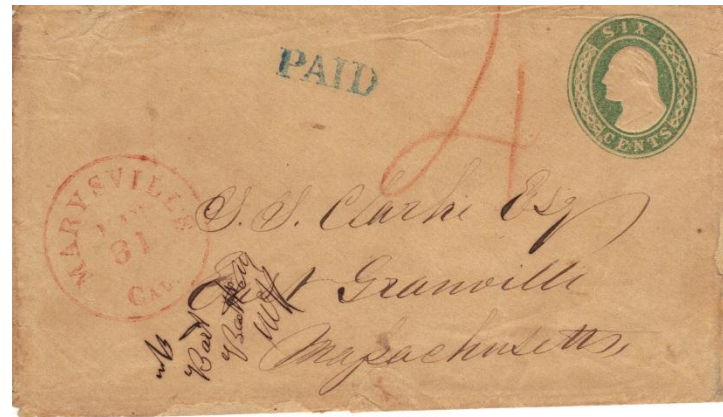 SIX
CENTS
PAID
4
MARYSVILLE
31
CAL.
S. S. Clarke Esq
Granville
Massachusetts